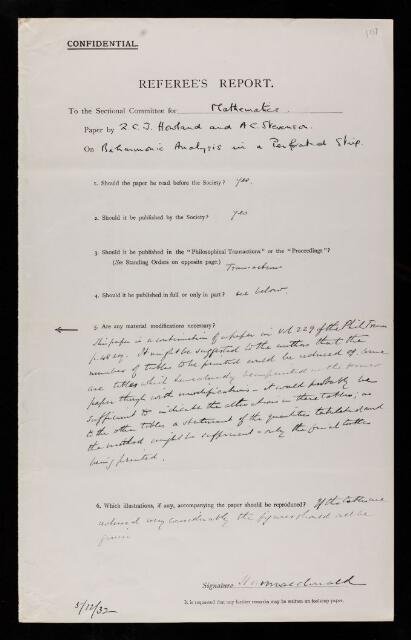 CONFIDENTIAL.
REFEREE'S REPORT.
To the Sectional Committee for Mathematics.
Paper by R.C.J. Howland and A C Stevenson.
On Biharmonic Analysis in a Perforated Strip.
1. Should the paper be read before the Society? Yes.
2. Should it be published by the Society? Yes
3. Should it be published in the "Philosophical Transactions" or the "Proceedings"?
(See Standing Orders on opposite page.) Transactions
4. Should it be published in full or only in part? see below.
5. Are any material modifications necessary?
This paper is a continuation of a paper in vol 229 of the Phil Trans
It might be suggested to the authors that the
number of tables to be printed could be reduced,
are tables which have already been printed in the former
paper though with modifications - it would probably be
sufficient to indicate the alterations in these tables; as
to the other tables a statement of the quantities tabulated and
the method might be sufficient - only the final table
being printed.
6. Which illustrations, if any, accompanying the paper should be reproduced? If the tables are
reduced very considerably the figures should all be
given
Signature H M Macdonald
5/12/32
It is requested that any further remarks may be written on foolscap paper.